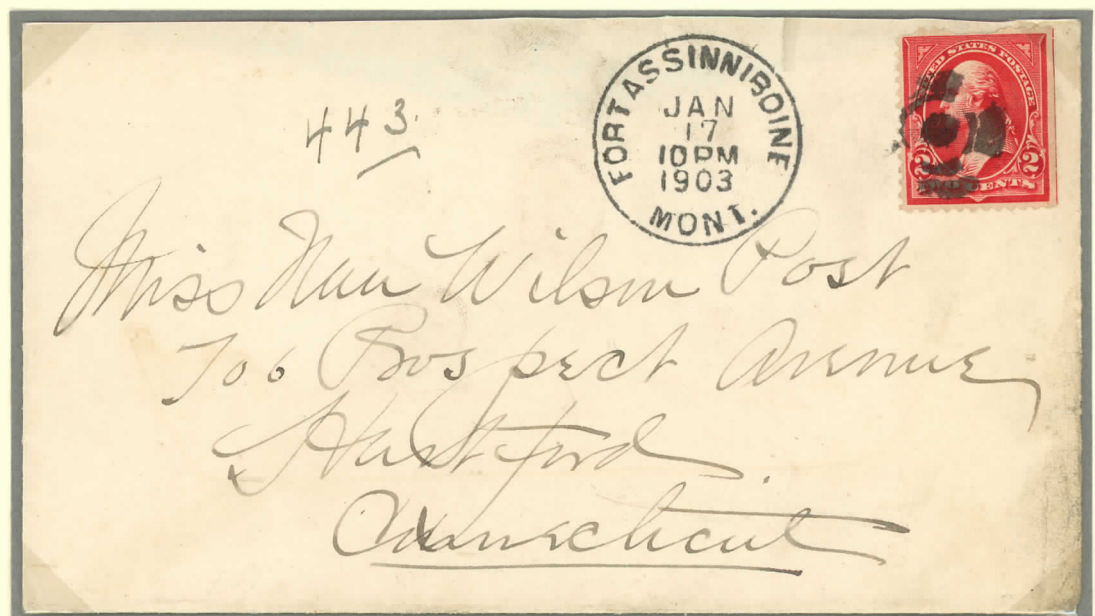 443.
FORT ASSINNIBOINE
JAN
17
10 PM
1903
MONT.
UNITED STATES POSTAGE
2 2
TWO CENTS
Miss Nan Wilson Post
706 Prospect Avenue,
Hartford
Connecticut